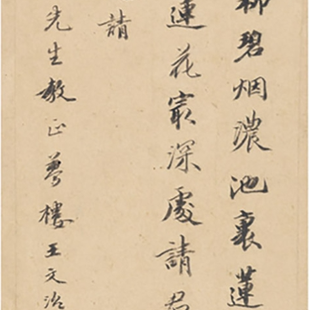 柳碧烟濃池裏蓮
蓮花最深處請君
請
先生教正夢樓王文治